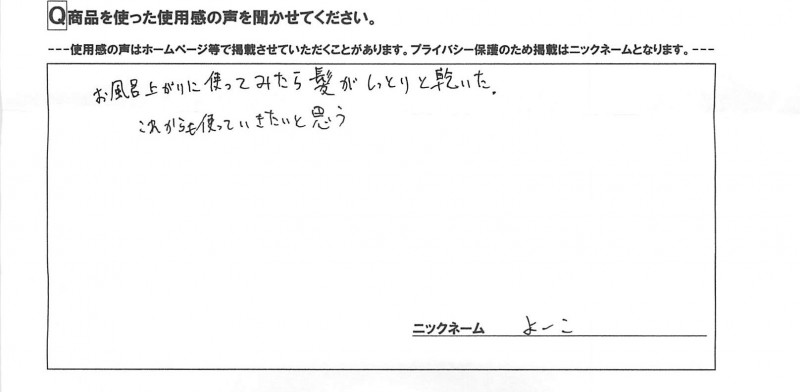 Q商品を使った使用感の声を聞かせてください。
---使用感の声はホームページ等で掲載させていただくことがあります。プライバシー保護のため掲載はニックネームとなります。---
お風呂上がりに使ってみたら髪がしっとりと乾いた.
これからも使っていきたいと思う
ニックネーム よーこ